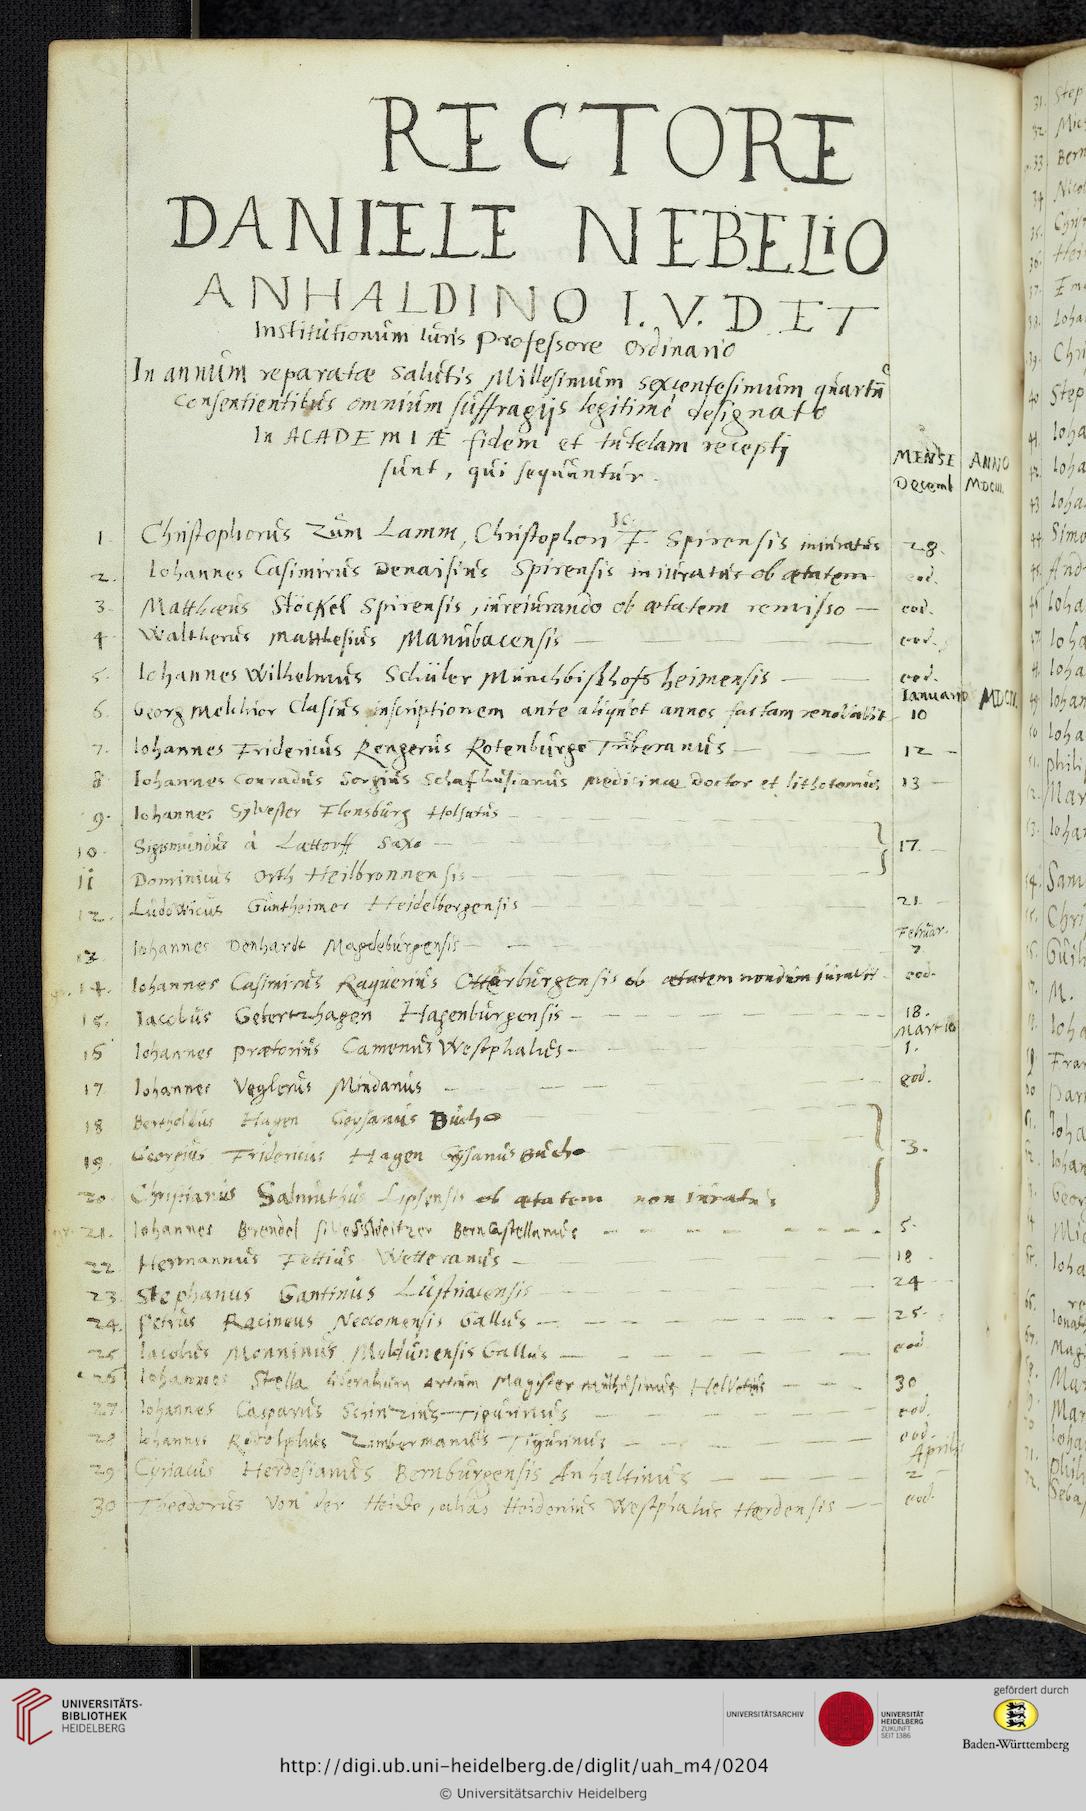 RECTORE
DANIELE NEBELIO
ANHALDINO I. V. D ET
Institutionum Iuris Professore Ordinario
In annum reparatæ Salutis Millesimum sexcentesimum quartũ
Consentientibus omnium suffragijs legitimè designato
In ACADEMIÆ fidem et tutelam recepti
sunt, qui sequuntur.
MENSE ANNO
Decemb MDCIII.
1. Christophorus Zum Lamm, Christophori F. Spirensis iniuratus 28.
2. Iohannes Casimirus Denaisius Spirensis iniuratus ob ætatem eod.
3. Matthæus Stöckel Spirensis, iureiurando ob ætatem remisso eod.
4 Waltherus Matthesius Manubacensis eod.
5. Iohannes Wilhelmus Schüler Münchbischofsheimensis eod.
Ianuario
6. Georg Melchior Clasius inscriptionem ante aliquot annos factam renovavit 10
7. Iohannes Fridericus Rengerus Rotenburgo Tuberanus 12
8 Iohannes Conradus Sorgius Schafhusianus Medicinæ Doctor et lithotomus 13
9. Iohannes Sylvester Flensburg Holsatus
10. Sigismundus à Lattorff Saxo 17
11 Dominicus Orth Heilbronnensis
12. Ludovicus Guntheimer Heidelbergensis 21
Februar.
13 Iohannes Denhardt Magdeburgensis 7
14. Iohannes Casimirus Raquerius Otterburgensis ob ætatem nondum iuravit eod.
15. Iacobus Hagenburgensis 18.
Martio
16 Iohannes Prætorius Camenus Westphalus 1.
17 Iohannes Voglerus Mindanus eod.
18 Bertholdus Hagen
19. Georgius Fridericus Hagen 3.
20. Christianus Salmuthus Lipsensis ob ætatem non iuratus
21. Iohannes Brendel Berncastellanus 5.
22 Hermannus Fettius Wetteranus 18
23. Stephanus Gantinus 24
24. Petrus Racineus Neocomensis Gallus 25.
25 Iacobus Monninus Gallus eod
26 Iohannes Stella liberalium artium Magister Mulhusinus Helvetius 30
27. Iohannes Casparus Schinzius Tigurinus eod.
28 Iohannes Rodolphus Zimbermanus Tigurinus eod.
Aprilis
29 Cyriacus Herdesianus Bernburgensis Anhaltinus 2
30 Theodorus Von der Heide, alias Heidenius Westphalus eod.
UNIVERSITÄTS-
BIBLIOTHEK
HEIDELBERG
UNIVERSITÄTSARCHIV
UNIVERSITÄT
HEIDELBERG
ZUKUNFT
SEIT 1386
gefördert durch
Baden-Württemberg
http://digi.ub.uni-heidelberg.de/diglit/uah_m4/0204
© Universitätsarchiv Heidelberg